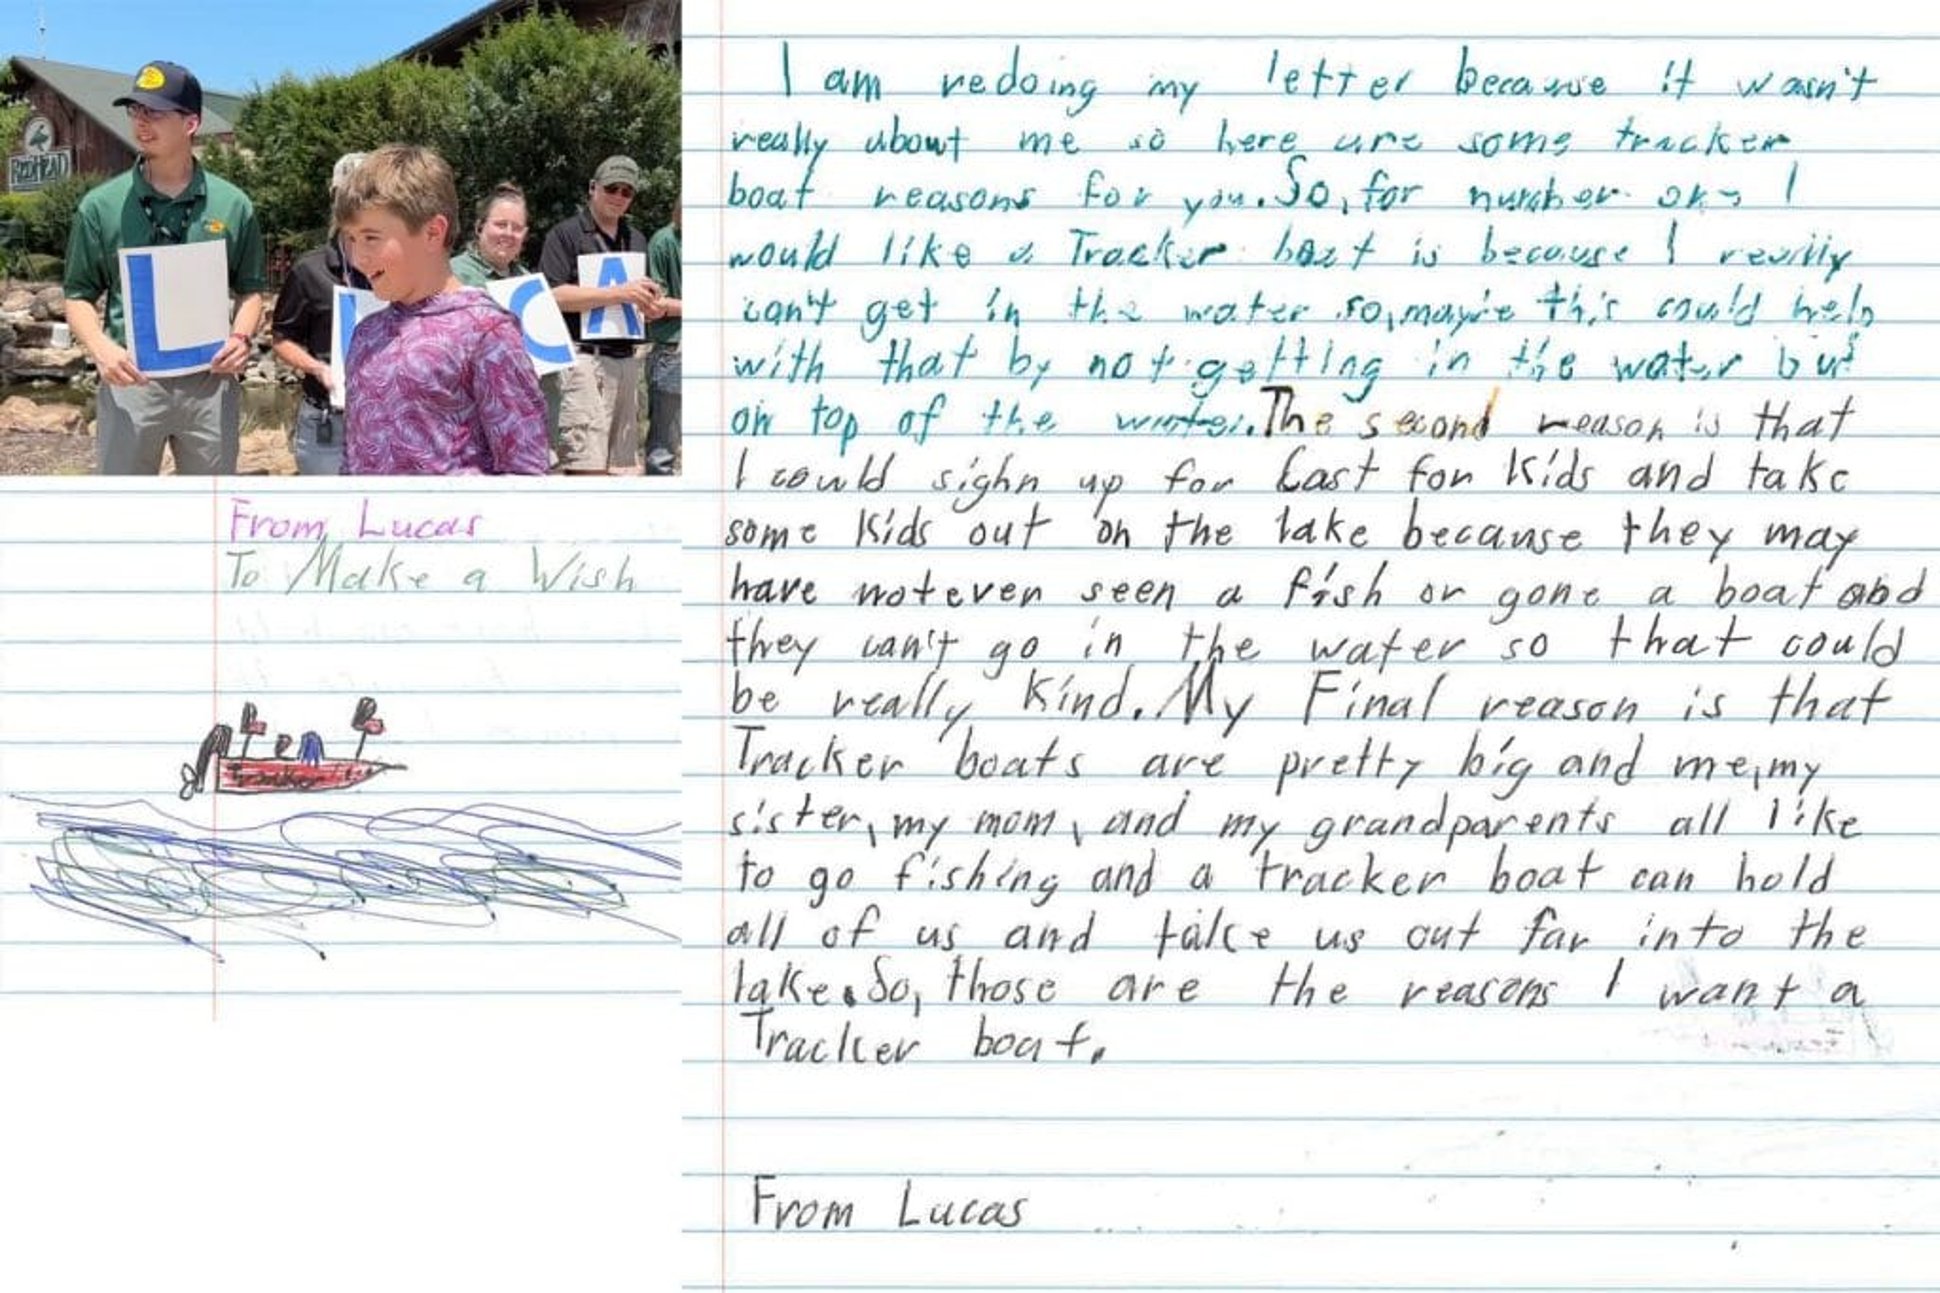 REDHEAD
L
C
A
From Lucas
To Make a Wish
Tracker
I am redoing my letter because it wasn't
really about me so here are some tracker
boat reasons for you. So, for number one I
would like a Tracker boat is because I really
can't get in the water so, maybe this could help
with that by not getting in the water but
on top of the water. The second reason is that
I could sighn up for Cast for Kids and take
some kids out on the lake because they may
have not even seen a fish or gone a boat and
they can't go in the water so that could
be really kind. My Final reason is that
Tracker boats are pretty big and me, my
sister, my mom, and my grandparents all like
to go fishing and a tracker boat can hold
all of us and take us out far into the
lake. So, those are the reasons I want a
Tracker boat.
From Lucas